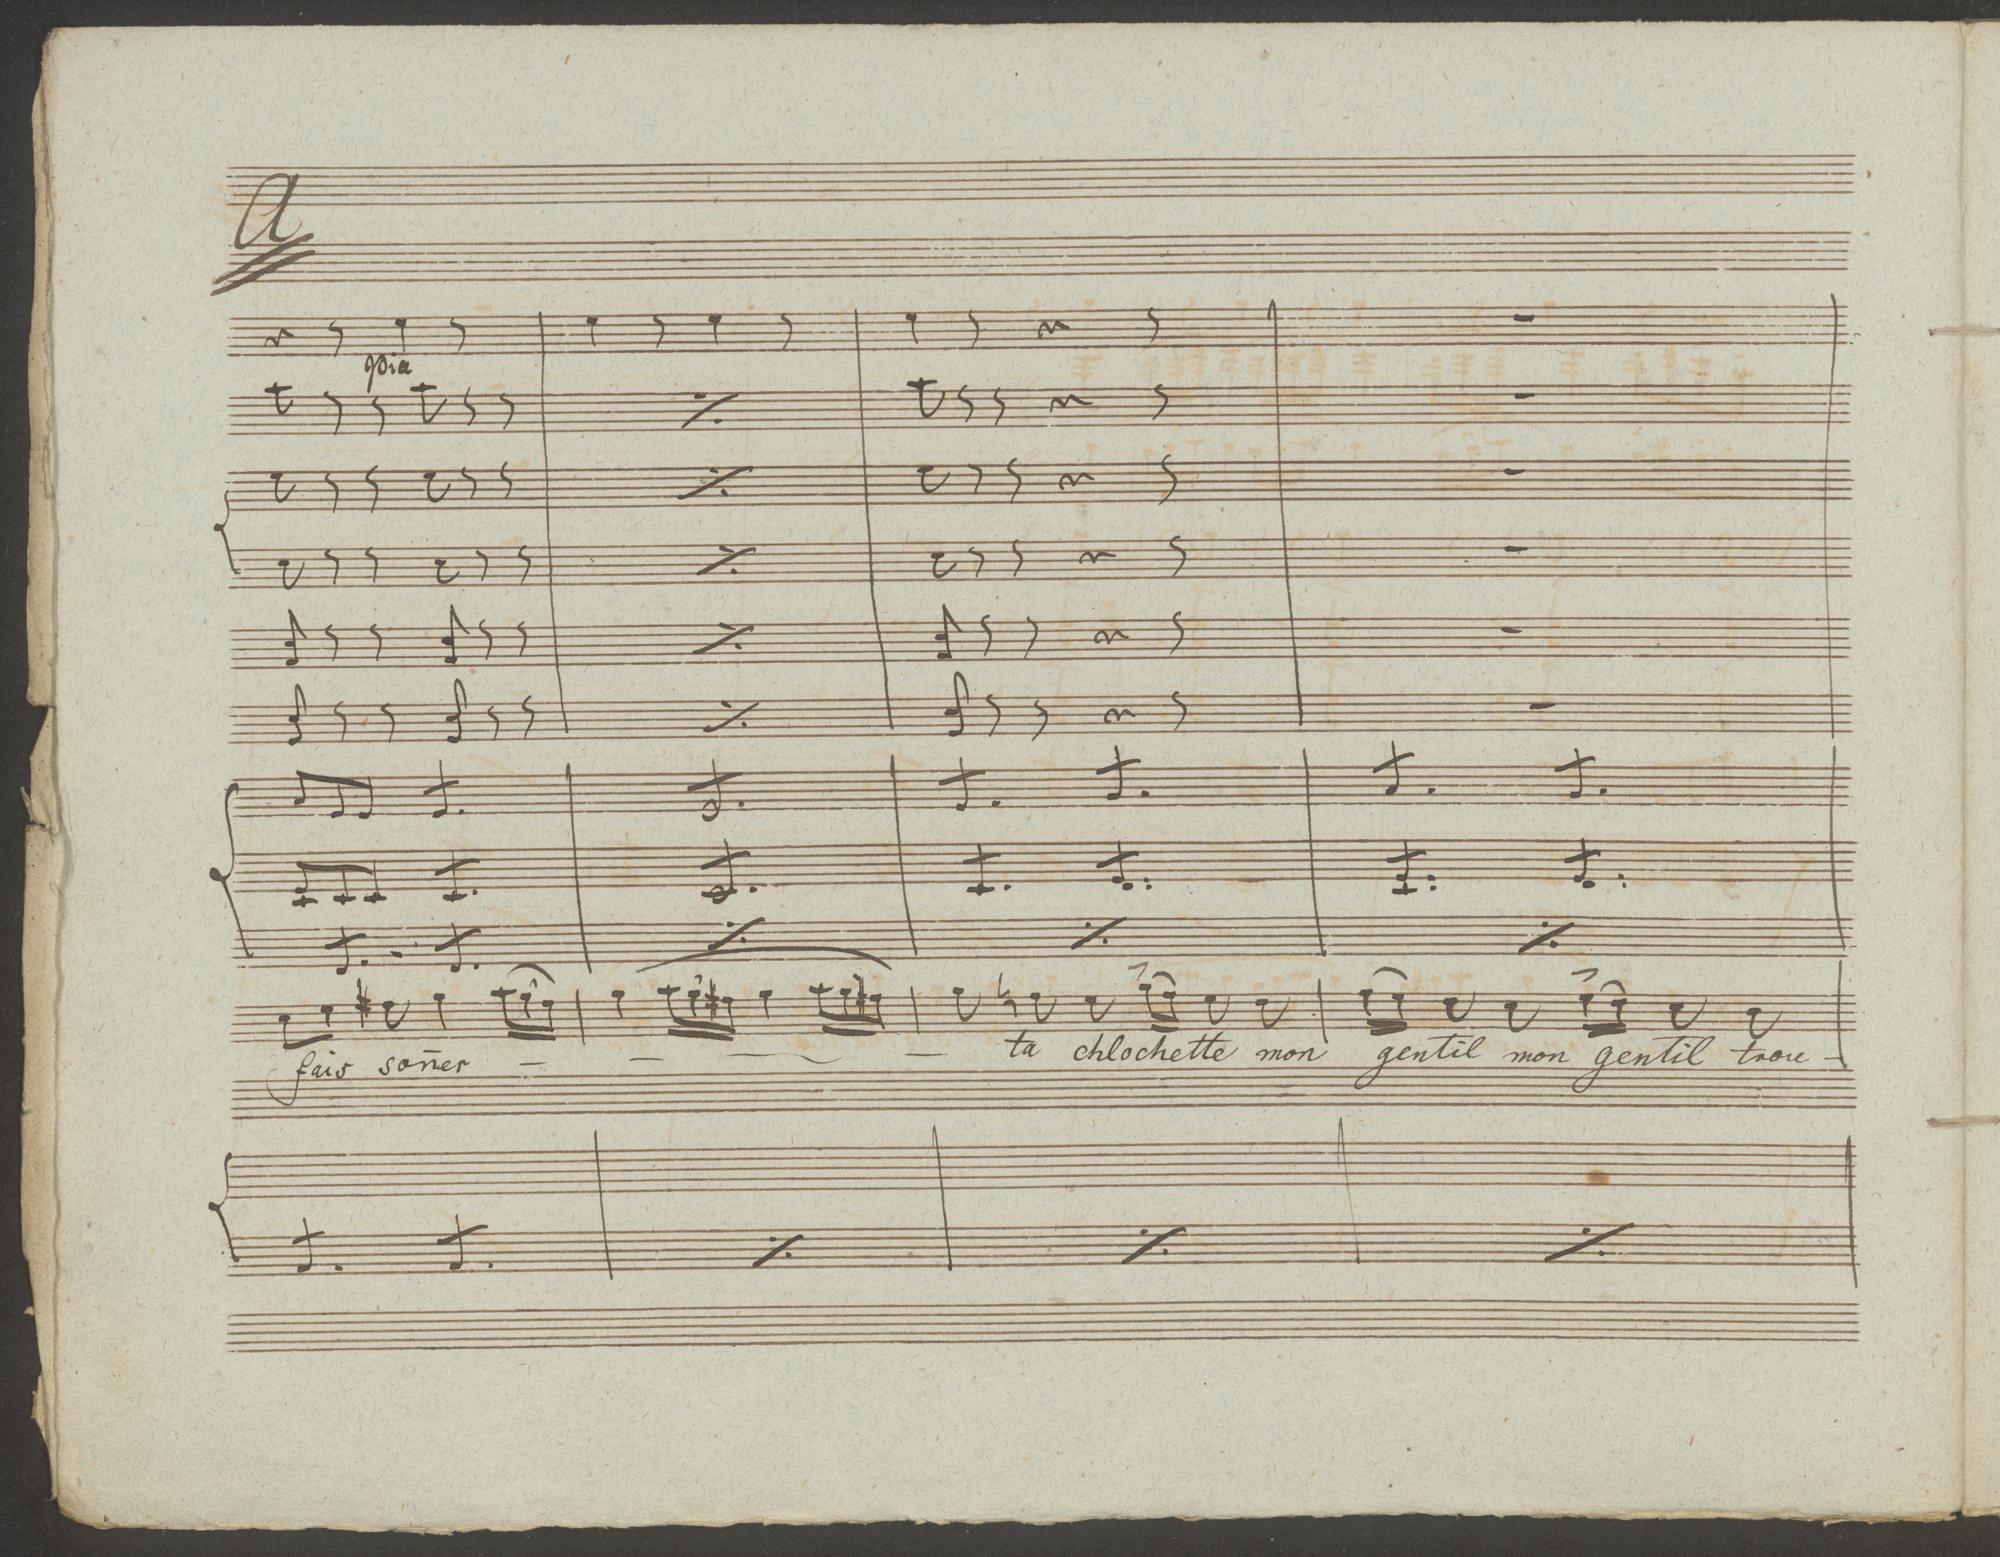 A
pia
fais soñer - - - - ta chlochette mon gentil mon gentil trou -